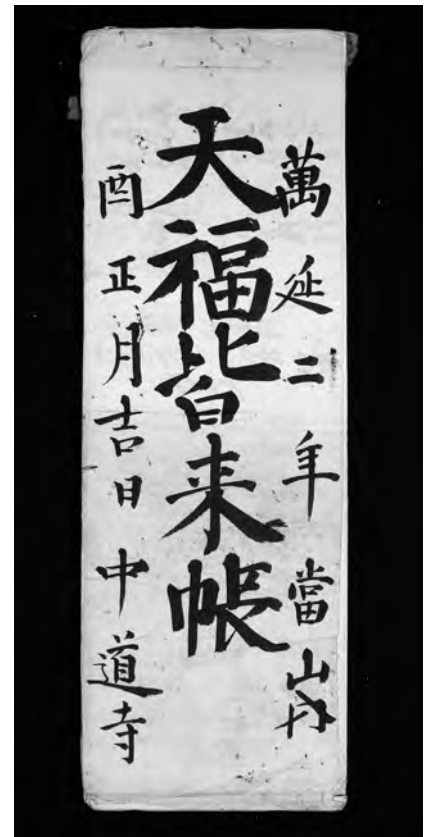 萬延二年當山
天福皆来帳
酉正月吉日中道寺